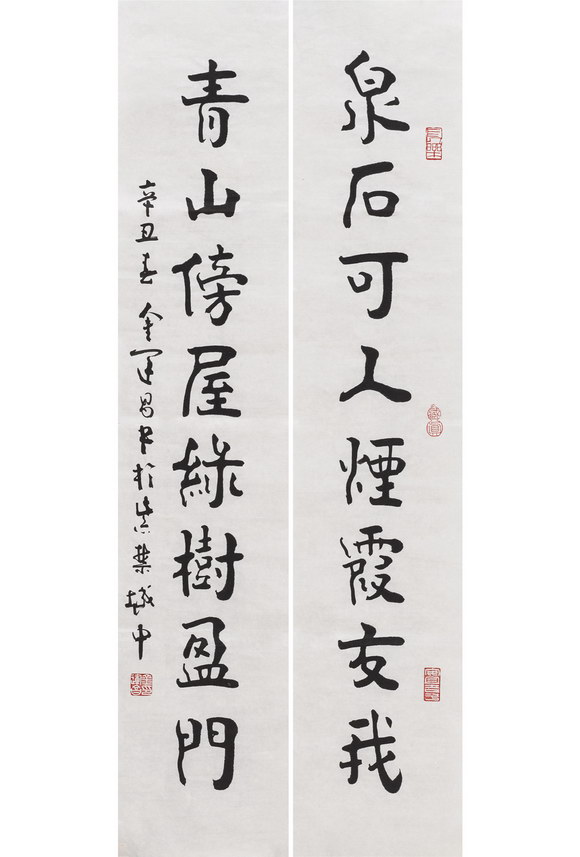 泉石可人煙霞友我
青山傍屋綠樹盈門
辛丑春金運昌書於紫禁城中